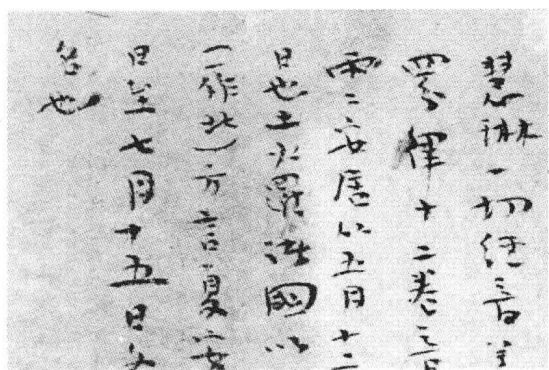 慧琳一切経音
律十二卷
雨安居以五月十
日也土火羅諸國以
（一作北）方言夏安
日至七月十五日
名也